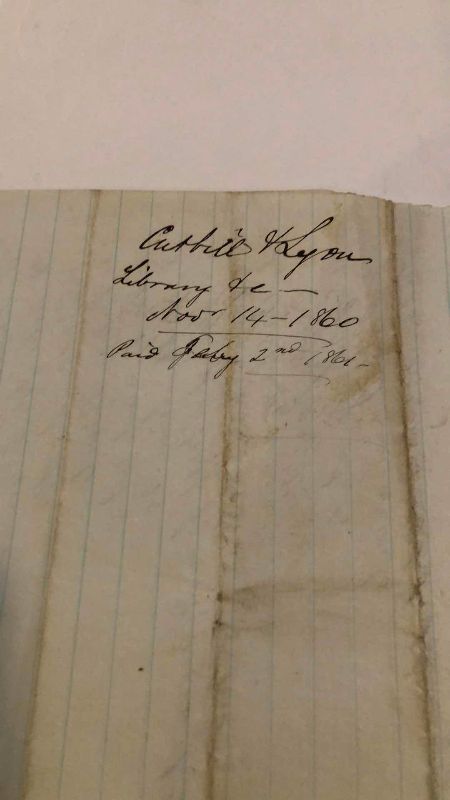 Cutbill & Lyon
Library &c —
Novr 14 - 1860
Paid Feby 2nd 1861 -